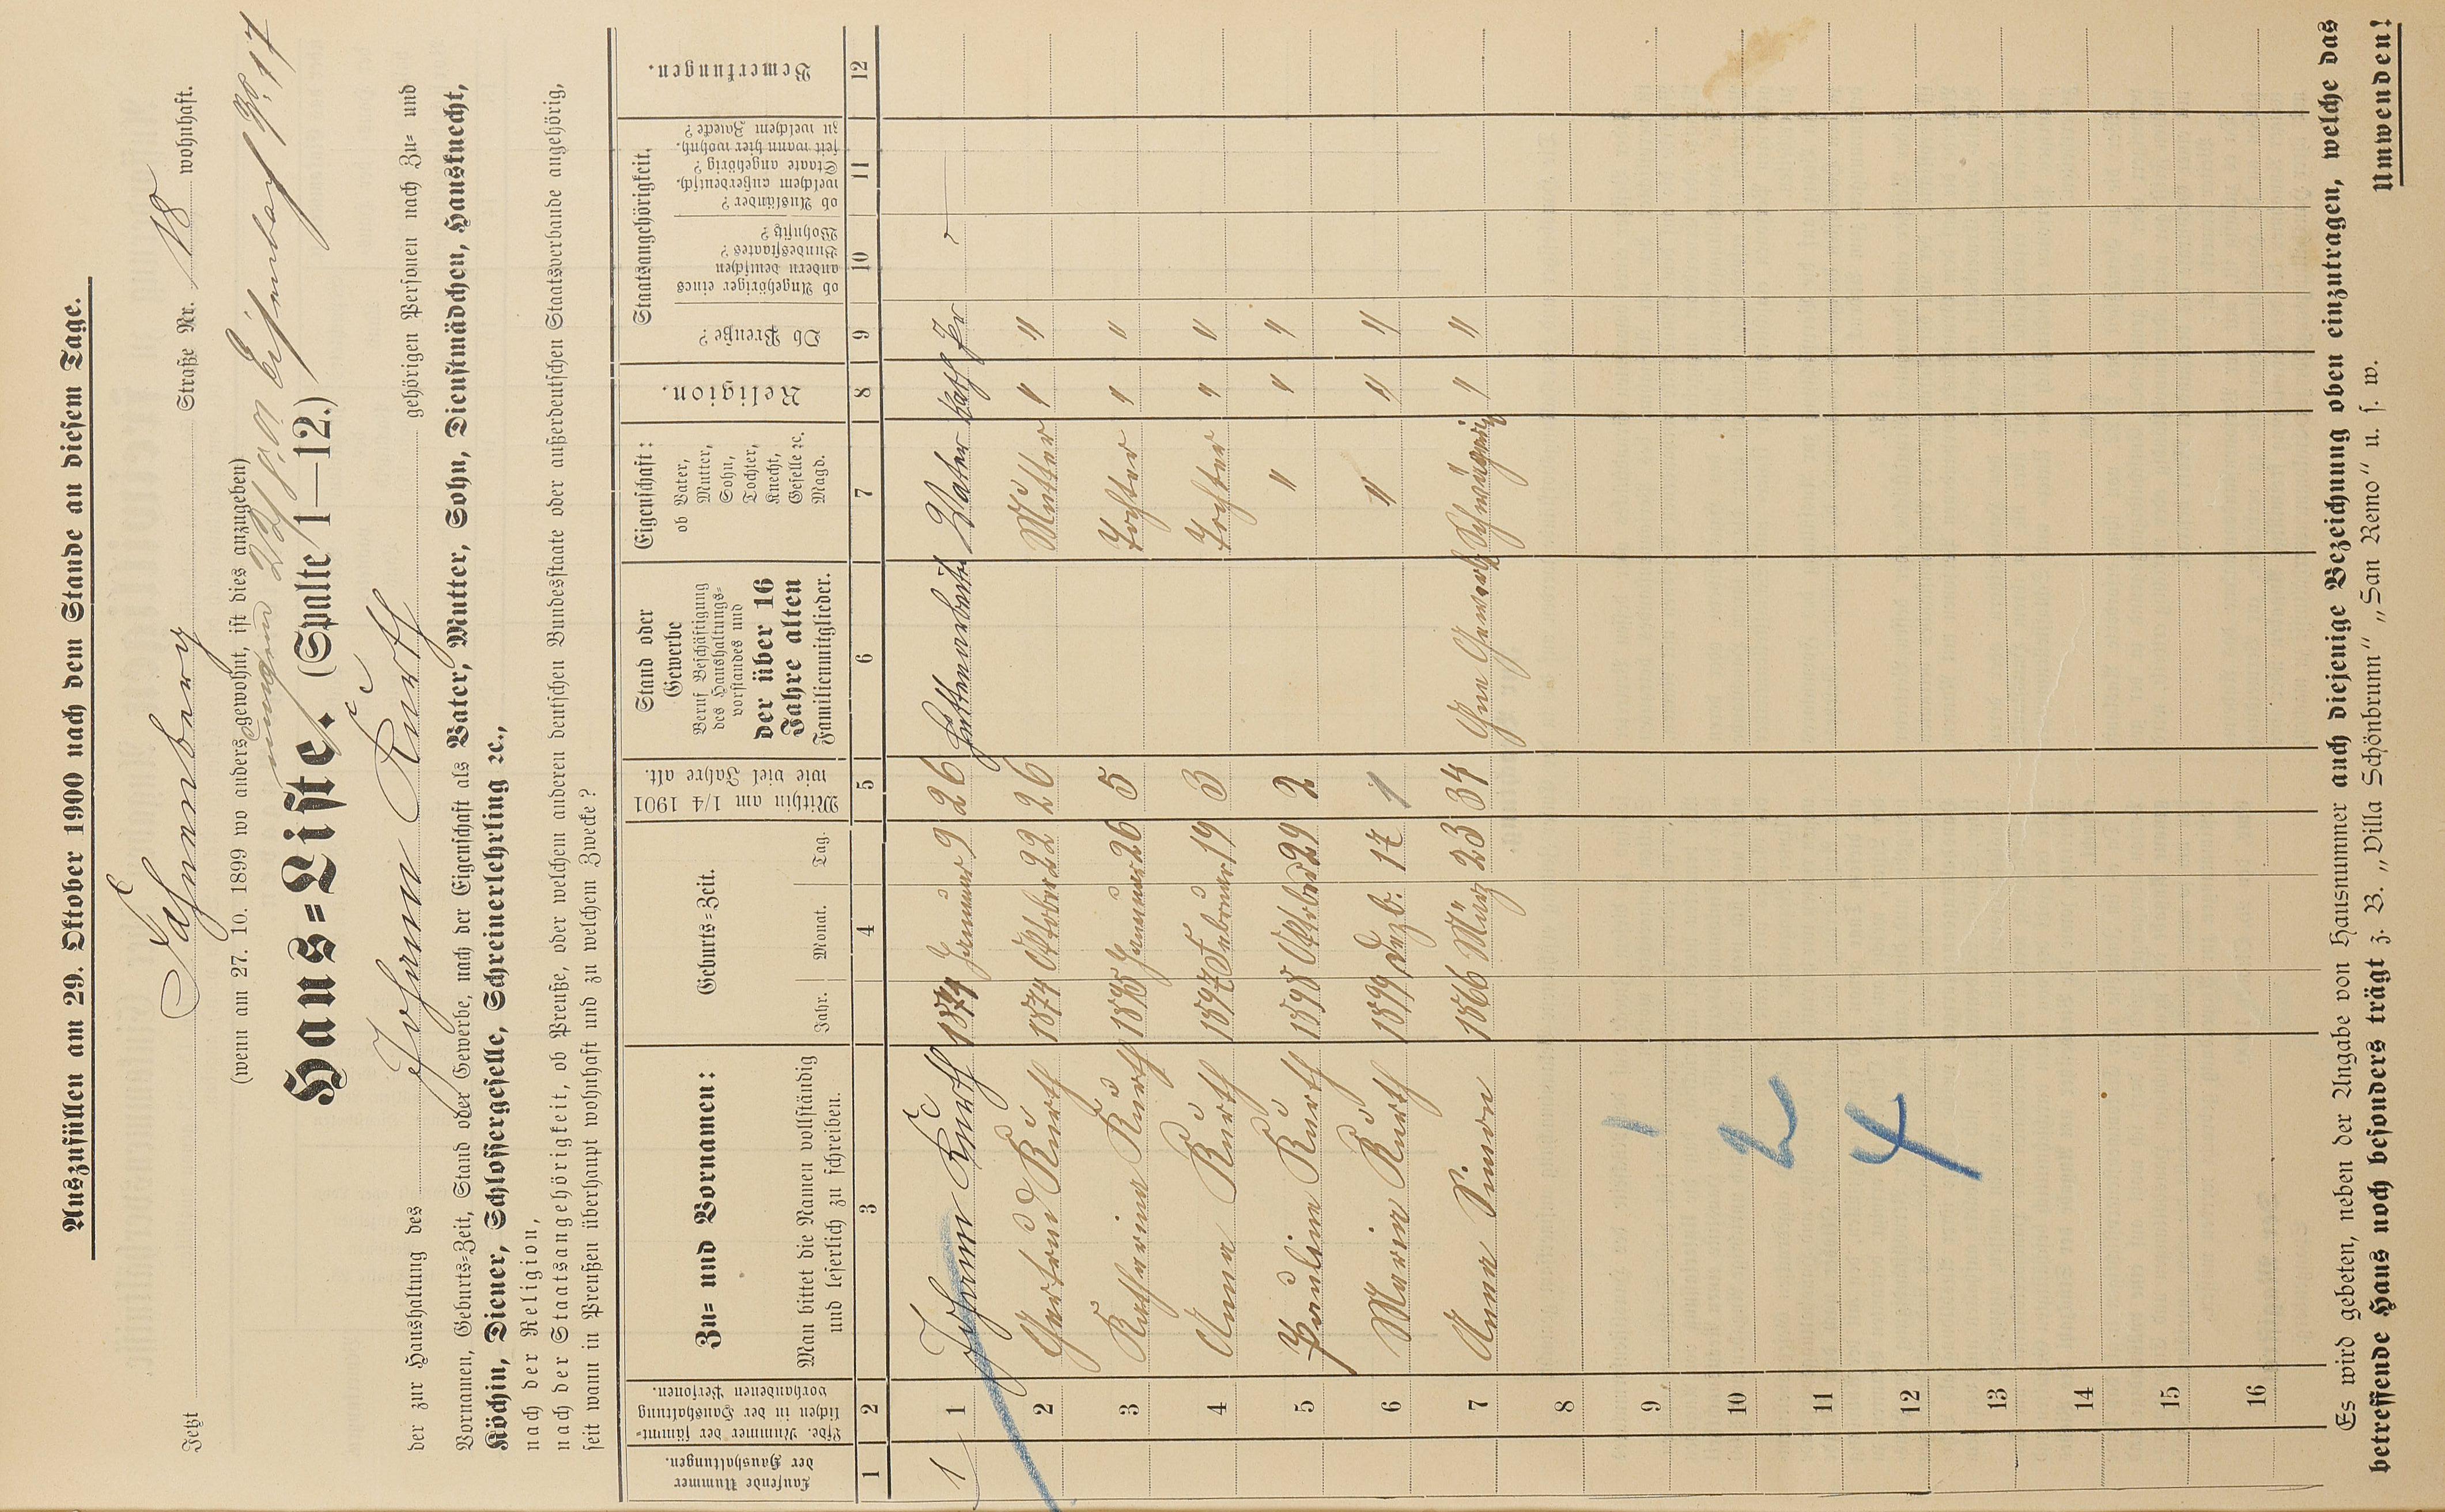 Auszufüllen am 29. Oktober 1900 nach dem Stande an diesem Tage.
Jetzt Fahrenberg Straße Nr. 18 wohnhaft.
(wenn am 27. 10. 1899 wo anders gewohnt, ist dies anzugeben)
Haus=Liste. (Spalte 1—12.)
der zur Haushaltung des Johann Kurth gehörigen Personen nach Zu= und
Vornamen, Geburts=Zeit, Stand oder Gewerbe, nach der Eigenschaft als Vater, Mutter, Sohn, Dienstmädchen, Hausknecht,
Köchin, Diener, Schlossergeselle, Schreinerlehrling ꝛc.,
nach der Religion,
nach der Staatsangehörigkeit, ob Preuße, oder welchem anderen deutschen Bundesstaate oder außerdeutschen Staatsverbande angehörig,
seit wann in Preußen überhaupt wohnhaft und zu welchem Zwecke?
Laufende Nummer der Haushaltungen.
Lfde. Nummer der sämmt=lichen in der Haushaltung vorhandenen Personen.
Zu= und Vornamen:
Man bittet die Namen vollständig
und leserlich zu schreiben.
Geburts=Zeit.
Jahr. Monat. Tag.
Mithin am 1/4 1901 wie viel Jahre alt.
Stand oder
Gewerbe
Beruf Beschäftigung
des Haushaltungs=
vorstandes und
der über 16
Jahre alten
Familienmitglieder.
Eigenschaft:
ob Vater,
Mutter,
Sohn,
Tochter,
Knecht,
Geselle ꝛc.
Magd.
Religion.
Staatsangehörigkeit.
Ob Preuße?
ob Angehöriger eines
andern deutschen
Bundesstaates?
Wohnsitz?
ob Ausländer?
welchem außerdeutsch.
Staate angehörig?
seit wann hier wohnh.
zu welchem Zwecke?
Bemerkungen.
1 2 3 4 5 6 7 8 9 10 11 12
1 1 Johann Kurth 1874 Januar 9 26 Hüttenarbeiter Vater kath Pr
2 Gertrud Kurth 1874 Oktober 22 26 Mutter " "
3 Katharina Kurth 1895 Januar 26 5 Tochter " "
4 Anna Kurth 1897 Februar 19 3 Tochter " "
5 Paulina Kurth 1898 Oktober 29 2 " " "
6 Maria Kurth 1899 Dezb. 17 1 " " "
7 Anna Simon 1866 März 23 34 Ohne Gewerbe Schwägerin " "
8
9 1
10 2
11
12 4
13
14
15
16
Es wird gebeten, neben der Angabe von Hausnummer auch diejenige Bezeichnung oben einzutragen, welche das
betreffende Haus noch besonders trägt z. B. „Villa Schönbrunn" „San Remo" u. s. w.
Umwenden!